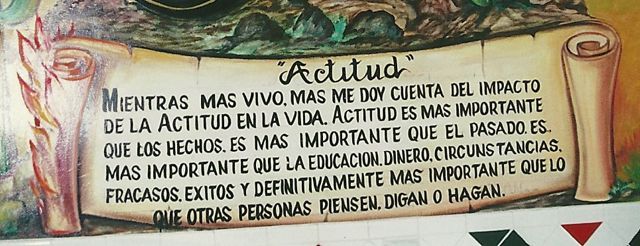 "Actitud"
MIENTRAS MAS VIVO, MAS ME DOY CUENTA DEL IMPACTO
DE LA ACTITUD EN LA VIDA. ACTITUD ES MAS IMPORTANTE
QUE LOS HECHOS. ES MAS IMPORTANTE QUE EL PASADO. ES.
MAS IMPORTANTE QUE LA EDUCACION, DINERO, CIRCUNSTANCIAS,
FRACASOS, EXITOS Y DEFINITIVAMENTE MAS IMPORTANTE QUE LO
QUE OTRAS PERSONAS PIENSEN, DIGAN O HAGAN.